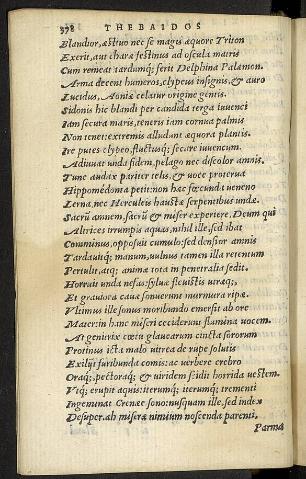 378 THEBAIDOS
Blandior, æstuo nec se magis æquore Triton
Exerit, aut charæ festinus ad oscula matris
Cum remeat tardumq; ferit Delphina Palæmon.
Arma decent humeros, clypeus insignis, & auro
Lucidus, Aoniæ celatur origine gentis.
Sidonis hic blandi per candida terga iuuenci
Iam secura maris, teneris iam cornua palmis
Non tenet: extremis alludunt æquora plantis.
Ire putes clypeo, fluctusq; secare iuuencum.
Adiuuat unda fidem, pelago nec discolor amnis.
Tunc audax pariter telis, & uoce proterua
Hippomedonta petit: non hæc fœcunda ueneno
Lerna, nec Herculeis haustæ serpentibus undæ.
Sacrũ amnem, sacrũ & miser experiere, Deum qui
Altrices irrumpis aquas, nihil ille, sed ibat
Comminus, opposuit cumulo: sed densior amnis
Tardauitq; manum, uulnus tamen illa retentum
Pertulit, atq; animæ tota in penetralia sedit.
Horruit unda nefas: syluæ fleuistis utræq;,
Et grauiora cauæ sonuerunt murmura ripæ.
Vltimus ille sonus moribundo emersit ab ore
Mater: in hanc miseri ceciderunt flumina uocem.
At genitrix cœtu glaucarum cincta sororum
Protinus icta malo uitrea de rupe solutis
Exilijt furibunda comis: ac uerbere crebro
Oraq;, pectoraq; & uiridem scidit horrida uestem.
Vtq; erupit aquis: iterumq; iterumq; trementi
Ingeminat Crenæe sono: nusquam ille, sed index
Desuper, ah miseræ nimium noscenda parenti,
Parma